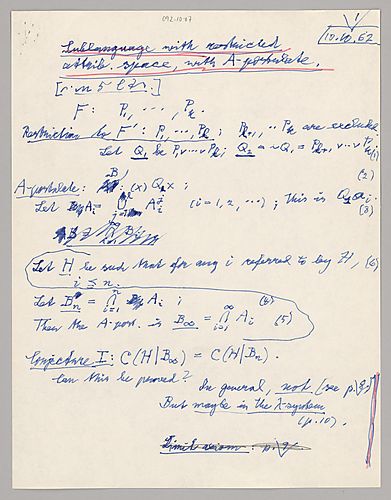 092-10-07
10.10.62
Sublanguage with restricted
attrib. space, with A-postulate.
F: P₁, ⋯, Pₖ.
Restriction to F': P₁, ⋯, Pₗ; Pₗ₊₁, ⋯ Pₖ are excluded
Let Q₁ be P₁ ∨ ⋯ ∨ Pₗ; Q₂ = ~Q₁ = Pₗ₊₁ ∨ ⋯ ∨ Pₖ (1)
(2)
A-postulate: B: (x) Q₁x;
Let Aᵢ = (i = 1, 2, ⋯); This is Q₁aᵢ. (3)
Let H be such that for any i referred to by H, (6)
i ≤ n.
Let Bₙ = ⋂ᵢ₌₁ⁿ Aᵢ; (4)
Then the A-post. is B∞ = ⋂ᵢ₌₁^∞ Aᵢ (5)
Conjecture I: C(H|B∞) = C(H|Bₙ).
Can this be proved? In general, not (see p. 9.)
But maybe in the λ-system
(p. 10).